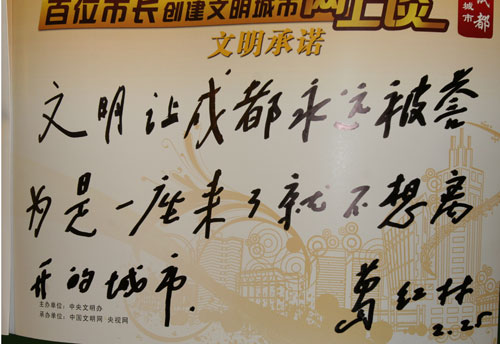 百位市长创建文明城市网上谈
成都
城市
文明承诺
文明让成都永远被誉
为是一座来了就不想离
开的城市.
葛红林
2.25
主办单位：中央文明办
承办单位：中国文明网 央视网